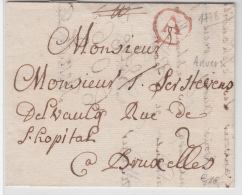 1778
A
Anvers
Monsieur
Monsieur J. Serstevens
De Vaulx Rue de
L'hopital
a Bruxelles